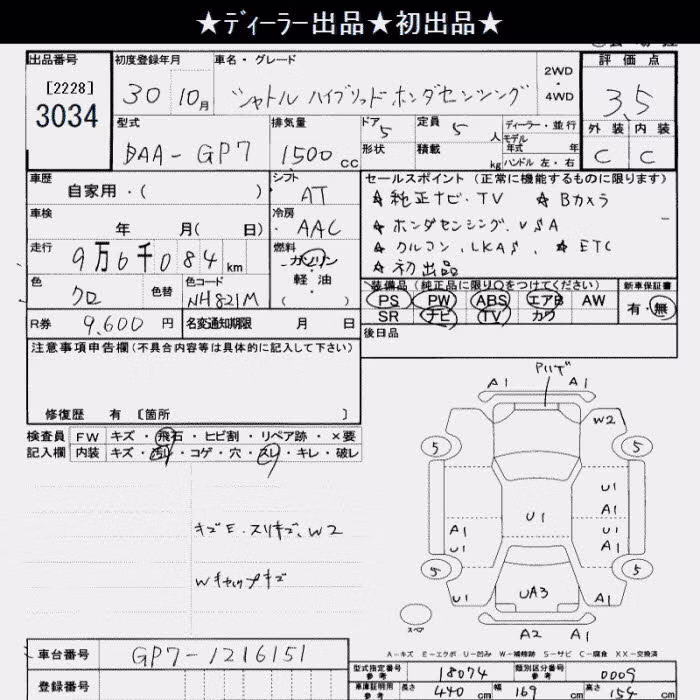 ★ディーラー出品★初出品★
出品番号
[2228]
3034
初度登録年月
30 10月
車名・グレード
シャトル ハイブリッド ホンダセンシング
2WD
・
4WD
評価点
3.5
外装 内装
C C
型式
DAA-GP7
排気量
1500cc
ドア 5
形状
定員 5人
積載 kg
ディーラー・並行
モデル
年式 年
ハンドル 左・右
車歴
自家用・( )
シフト
AT
車検
年 月( 日)
冷房
AAC
走行
9万6千084km
燃料
ガソリン
・
軽油
( )
色
クロ
色替
色コード
NH821M
R券 9,600円
名変通知期限 月 日
セールスポイント(正常に機能するものに限ります)
☆純正ナビ・TV ☆Bカメラ
☆ホンダセンシング、VSA
☆クルコン、LKAS、☆ETC
☆初出品
装備品(純正品に限り○をつけてください)
PS PW ABS エアB AW
SR ナビ TV カワ
新車保証書
有・無
後日品
注意事項申告欄(不具合内容等は具体的に記入して下さい)
修復歴 有 [箇所 ]
検査員
記入欄
FW キズ・飛石・ヒビ割・リペア跡・×要
内装 キズ・汚れ・コゲ・穴・スレ・キレ・破レ
キズE・スリキズ、W2
Wキャップキズ
A1 A1
W2
5 5
U1
A1
U1
A1 U1
U1 A1
5 5
U1 UA3 A1
A2 A1
スペア
A-キズ E-エクボ U-凹み W-補修跡 S-サビ C-腐食 XX-交換済
車台番号 GP7-1216151
登録番号
型式指定番号
参考
18074
類別区分番号
参考
0009
車庫証明用
参考
長さ 440cm 幅 169cm 高さ 154cm